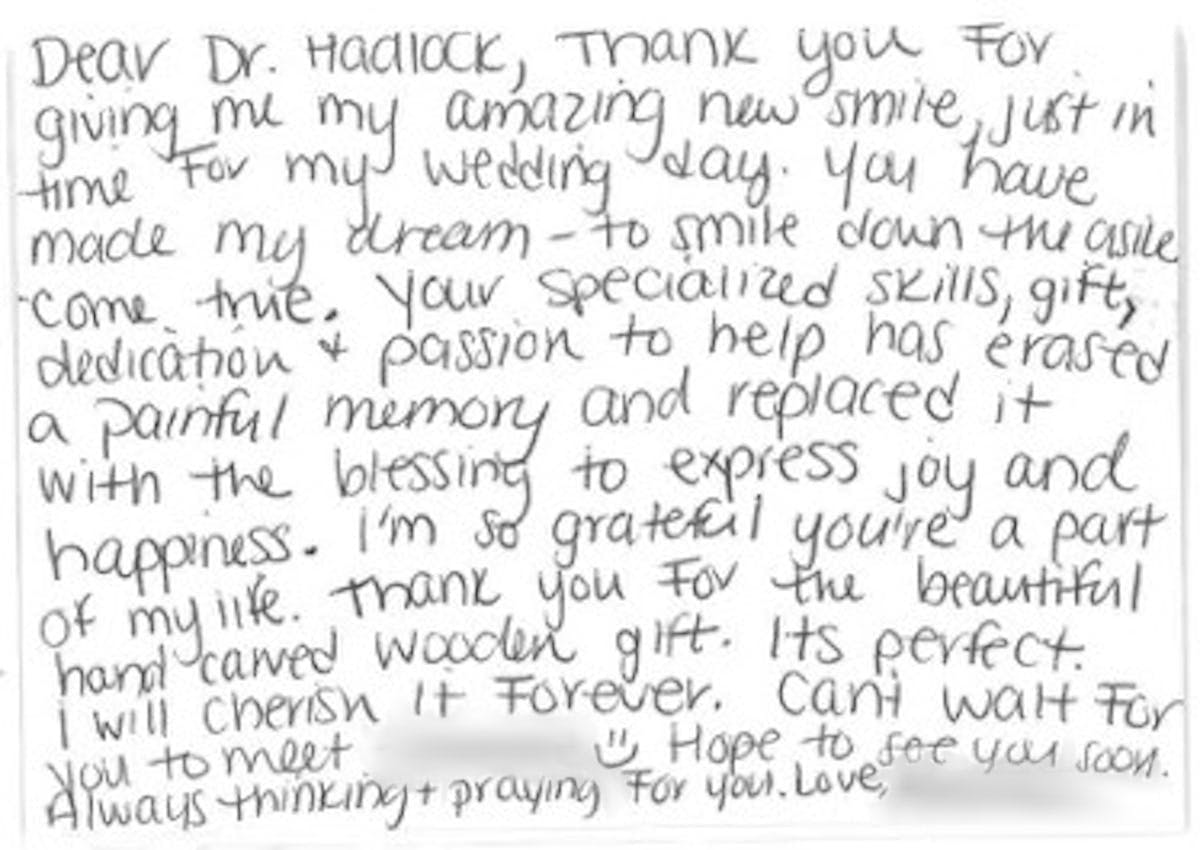 Dear Dr. Hadlock, Thank you For
giving me my amazing new smile, just in
time For my wedding day. You have
made my dream - to smile down the asile
come true. Your specialized skills, gift,
dedication + passion to help has erased
a painful memory and replaced it
with the blessing to express joy and
happiness. I'm so grateful you're a part
of my life. Thank you For the beautiful
hand carved wooden gift. Its perfect.
I will cherish it Forever. Cant wait For
you to meet Hope to see you soon.
Always thinking + praying For you. Love,